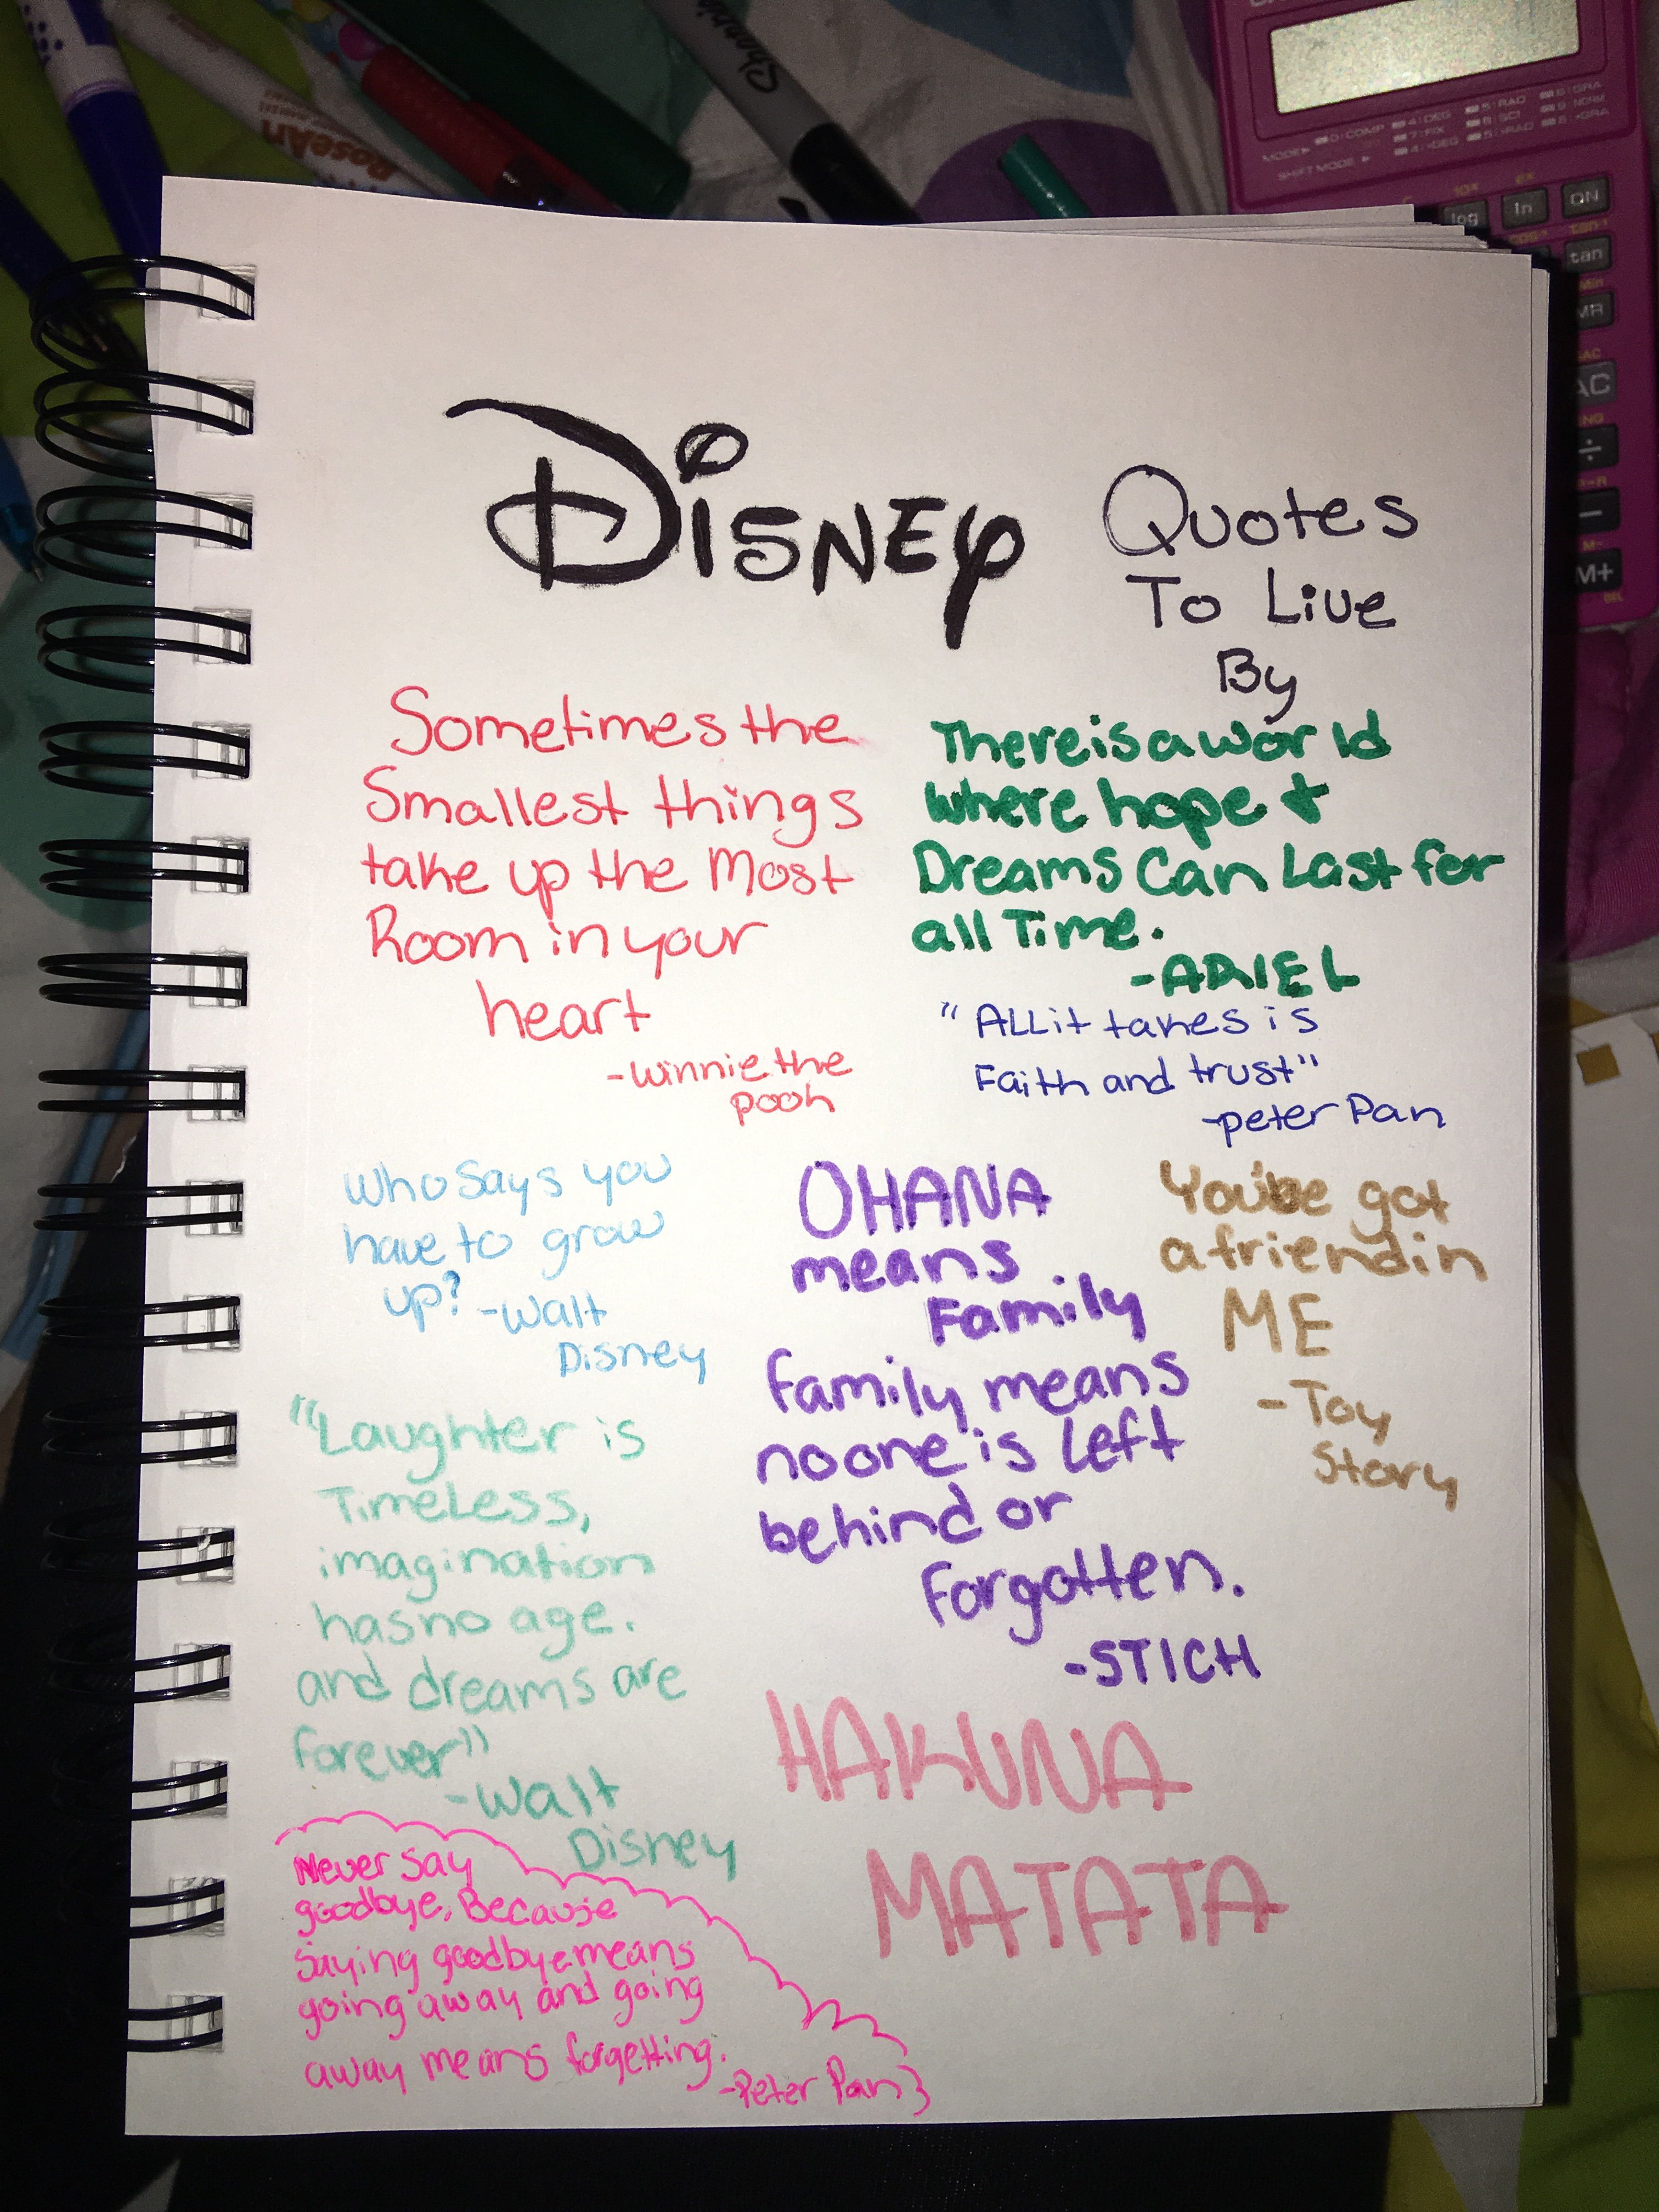 Sharpie
RoseArt
MODE▸
SHIFT MODE ▸
log
ln
ON
tan
MR
AC
÷
−
M+
DISNEY
Quotes
To Live
By
Sometimes the
Smallest things
take up the Most
Room in your
heart
-Winnie the
pooh
There is a world
where hope &
Dreams Can Last for
all Time.
-ARIEL
"ALL it takes is
Faith and trust"
-peter Pan
Who Says you
have to grow
up? -Walt
Disney
OHANA
means
Family
family means
no one is left
behind or
forgotten.
-STICH
You've got
a friend in
ME
-Toy
Story
"Laughter is
TimeLess,
imagination
has no age.
and dreams are
forever"
-Walt
Disney
HAKUNA
MATATA
Never say
goodbye, Because
Saying goodbye means
going away and going
away means forgetting.
-Peter Pan